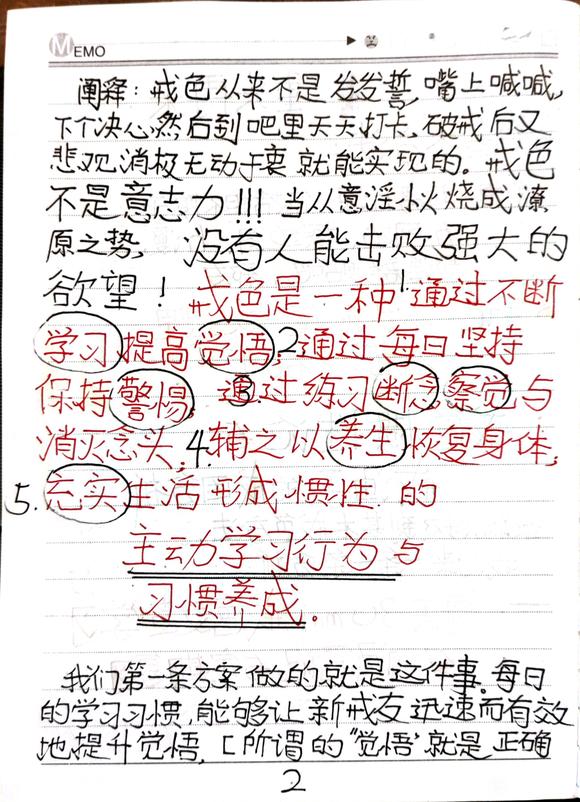 MEMO
阐释：戒色从来不是发发誓，嘴上喊喊，
下个决心，然后到吧里天天打卡，破戒后又
悲观消极无动于衷就能实现的。戒色
不是意志力!!! 当从意淫小火烧成潦
原之势，没有人能击败强大的
欲望！戒色是一种 1 通过不断
学习提高觉悟；2 通过每日坚持
保持警惕，3 通过练习断念察觉与
消灭念头；4. 辅之以养生恢复身体；
5. 充实生活形成惯性 的
主动学习行为与
习惯养成。
我们第一条方案做的就是这件事。每日
的学习习惯，能够让新戒友迅速而有效
地提升觉悟，[所谓的"觉悟"就是正确
2